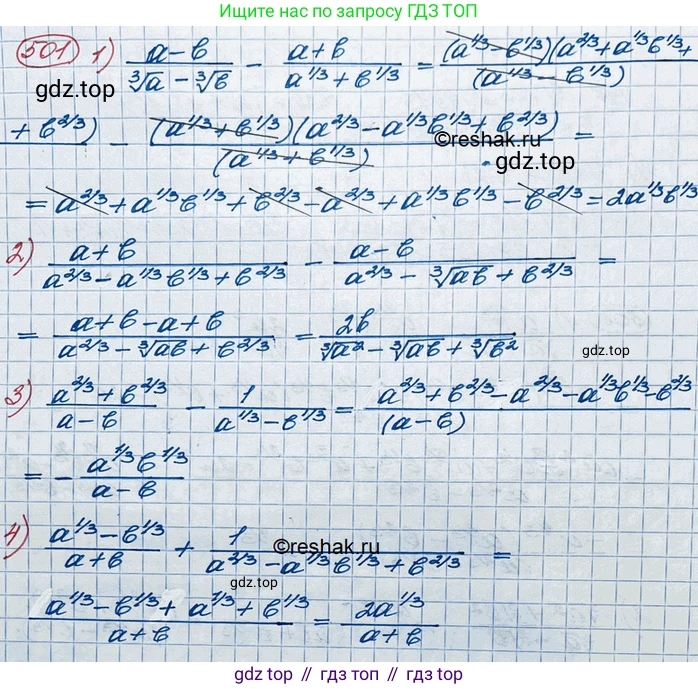 Найти больше по запросу ГДЗ ТОП
501 1) (a-b)/(∛a - ∛b) - (a+b)/(a^{1/3} + b^{1/3}) = (a^{1/3} - b^{1/3})(a^{2/3} + a^{1/3}b^{1/3} +
gdz.top (a^{1/3} - b^{1/3})
+ b^{2/3}) - (a^{1/3} + b^{1/3})(a^{2/3} - a^{1/3}b^{1/3} + b^{2/3})/(a^{1/3} + b^{1/3}) =
©reshak.ru
gdz.top
= a^{2/3} + a^{1/3}b^{1/3} + b^{2/3} - a^{2/3} + a^{1/3}b^{1/3} - b^{2/3} = 2a^{1/3}b^{1/3}
2) (a+b)/(a^{2/3} - a^{1/3}b^{1/3} + b^{2/3}) - (a-b)/(a^{2/3} - ∛ab + b^{2/3}) =
= (a+b-a+b)/(a^{2/3} - ∛ab + b^{2/3}) = 2b/(∛a² - ∛ab + ∛b²)
gdz.top
3) (a^{2/3} + b^{2/3})/(a-b) - 1/(a^{1/3} - b^{1/3}) = (a^{2/3} + b^{2/3} - a^{2/3} - a^{1/3}b^{1/3} - b^{2/3})/(a-b)
= - a^{1/3}b^{1/3}/(a-b)
4) (a^{1/3} - b^{1/3})/(a+b) + 1/(a^{2/3} - a^{1/3}b^{1/3} + b^{2/3}) =
©reshak.ru
gdz.top
(a^{1/3} - b^{1/3} + a^{1/3} + b^{1/3})/(a+b) = 2a^{1/3}/(a+b)
gdz top // гдз топ // gdz.top